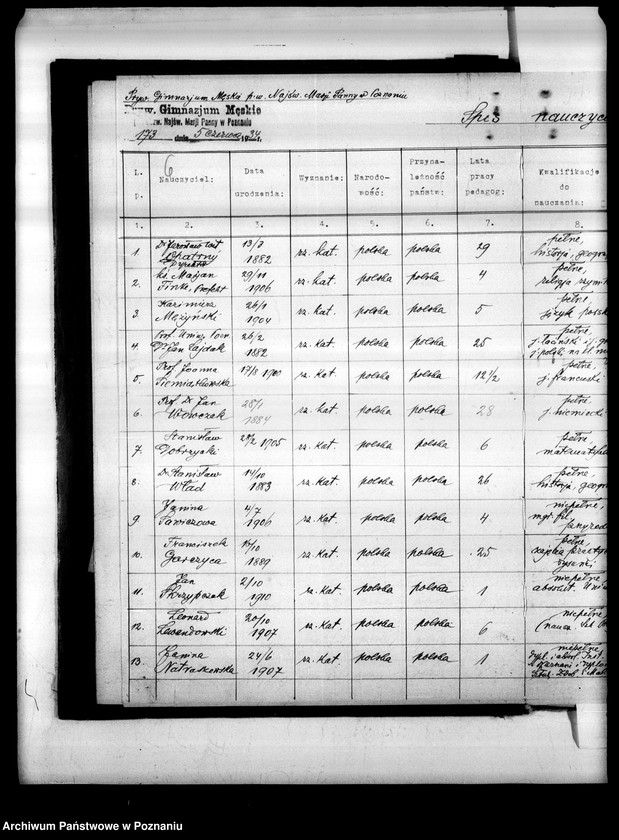 Pryw. Gimnazjum Męskie p.w. Najśw. Marji Panny w Poznaniu
w. Gimnazjum Męskie
rw. Najśw. Marji Panny w Poznaniu
173 dnia 5 czerwca 1934 r.
Spis nauczyc
6
L. p. Nauczyciel: Data urodzenia: Wyznanie: Narodowość: Przynależność państw: Lata pracy pedagog: Kwalifikacje do nauczania:
1. 2. 3. 4. 5. 6. 7. 8.
1. Dr 13/8 1882 rz. kat. polska polska 29 pełne, historja, geogr
2. ks. Marjan Finke, prefekt 29/11 1906 rz. kat. polska polska 4 pełne, religja rzym
3. Kazimierz 26/1 1904 rz. kat. polska polska 5 pełne, język polsk
4. Prof. Uniw. Pozn. Dr Jan Sajdak 26/2 1882 rz. kat. polska polska 25 pełne, j. łaciński i j. g
5. Prof. Joanna Siemiatkowska 17/8 1900 rz. kat. polska polska 12 1/2 pełne, j. francuski
6. Prof. Dr Jan Wowczak 28/1 1884 rz. kat. polska polska 28 pełne, j. niemiecki
7. Stanisław Dobrzycki 1905 rz. kat. polska polska 6 pełne, matematyka
8. Dr Stanisław Wład 14/10 1883 rz. kat. polska polska 26 pełne, historja, geogr
9. Janina 4/7 1906 rz. kat. polska polska 4 niepełne, mgr. fil.
10. Franciszek Garczyca 15/10 1889 rz. kat. polska polska 25 pełne, rysunki
11. Jan Skrzypczak 2/10 1910 rz. kat. polska polska 1 niepełne, absolut. Uniw
12. Leonard Lewandowski 20/10 1907 rz. kat. polska polska 6 niepełne
13. Janina Nataszewska 24/6 1907 rz. kat. polska polska 1 niepełne,
Archiwum Państwowe w Poznaniu